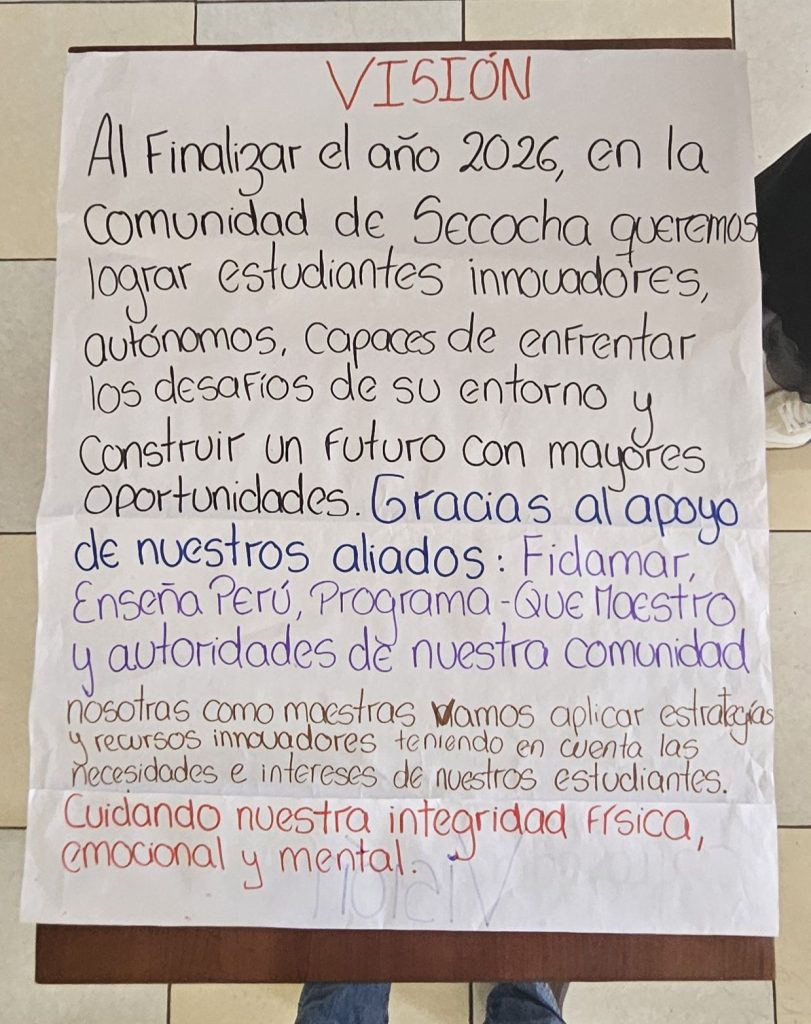 VISIÓN
Al Finalizar el año 2026, en la
comunidad de Secocha queremos
lograr estudiantes innovadores,
autónomos, capaces de enfrentar
los desafíos de su entorno y
construir un futuro con mayores
oportunidades. Gracias al apoyo
de nuestros aliados: Fidamar,
Enseña Perú, Programa - Que Maestro
y autoridades de nuestra comunidad
nosotras como maestras vamos aplicar estrategías
y recursos innovadores teniendo en cuenta las
necesidades e intereses de nuestros estudiantes.
Cuidando nuestra integridad física,
emocional y mental.
VISION